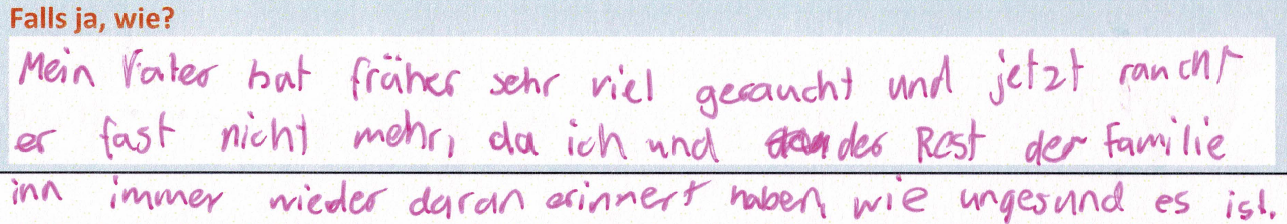 Falls ja, wie?
Mein Vater hat früher sehr viel geraucht und jetzt raucht
er fast nicht mehr, da ich und der Rest der Familie
ihn immer wieder daran erinnert haben, wie ungesund es ist.